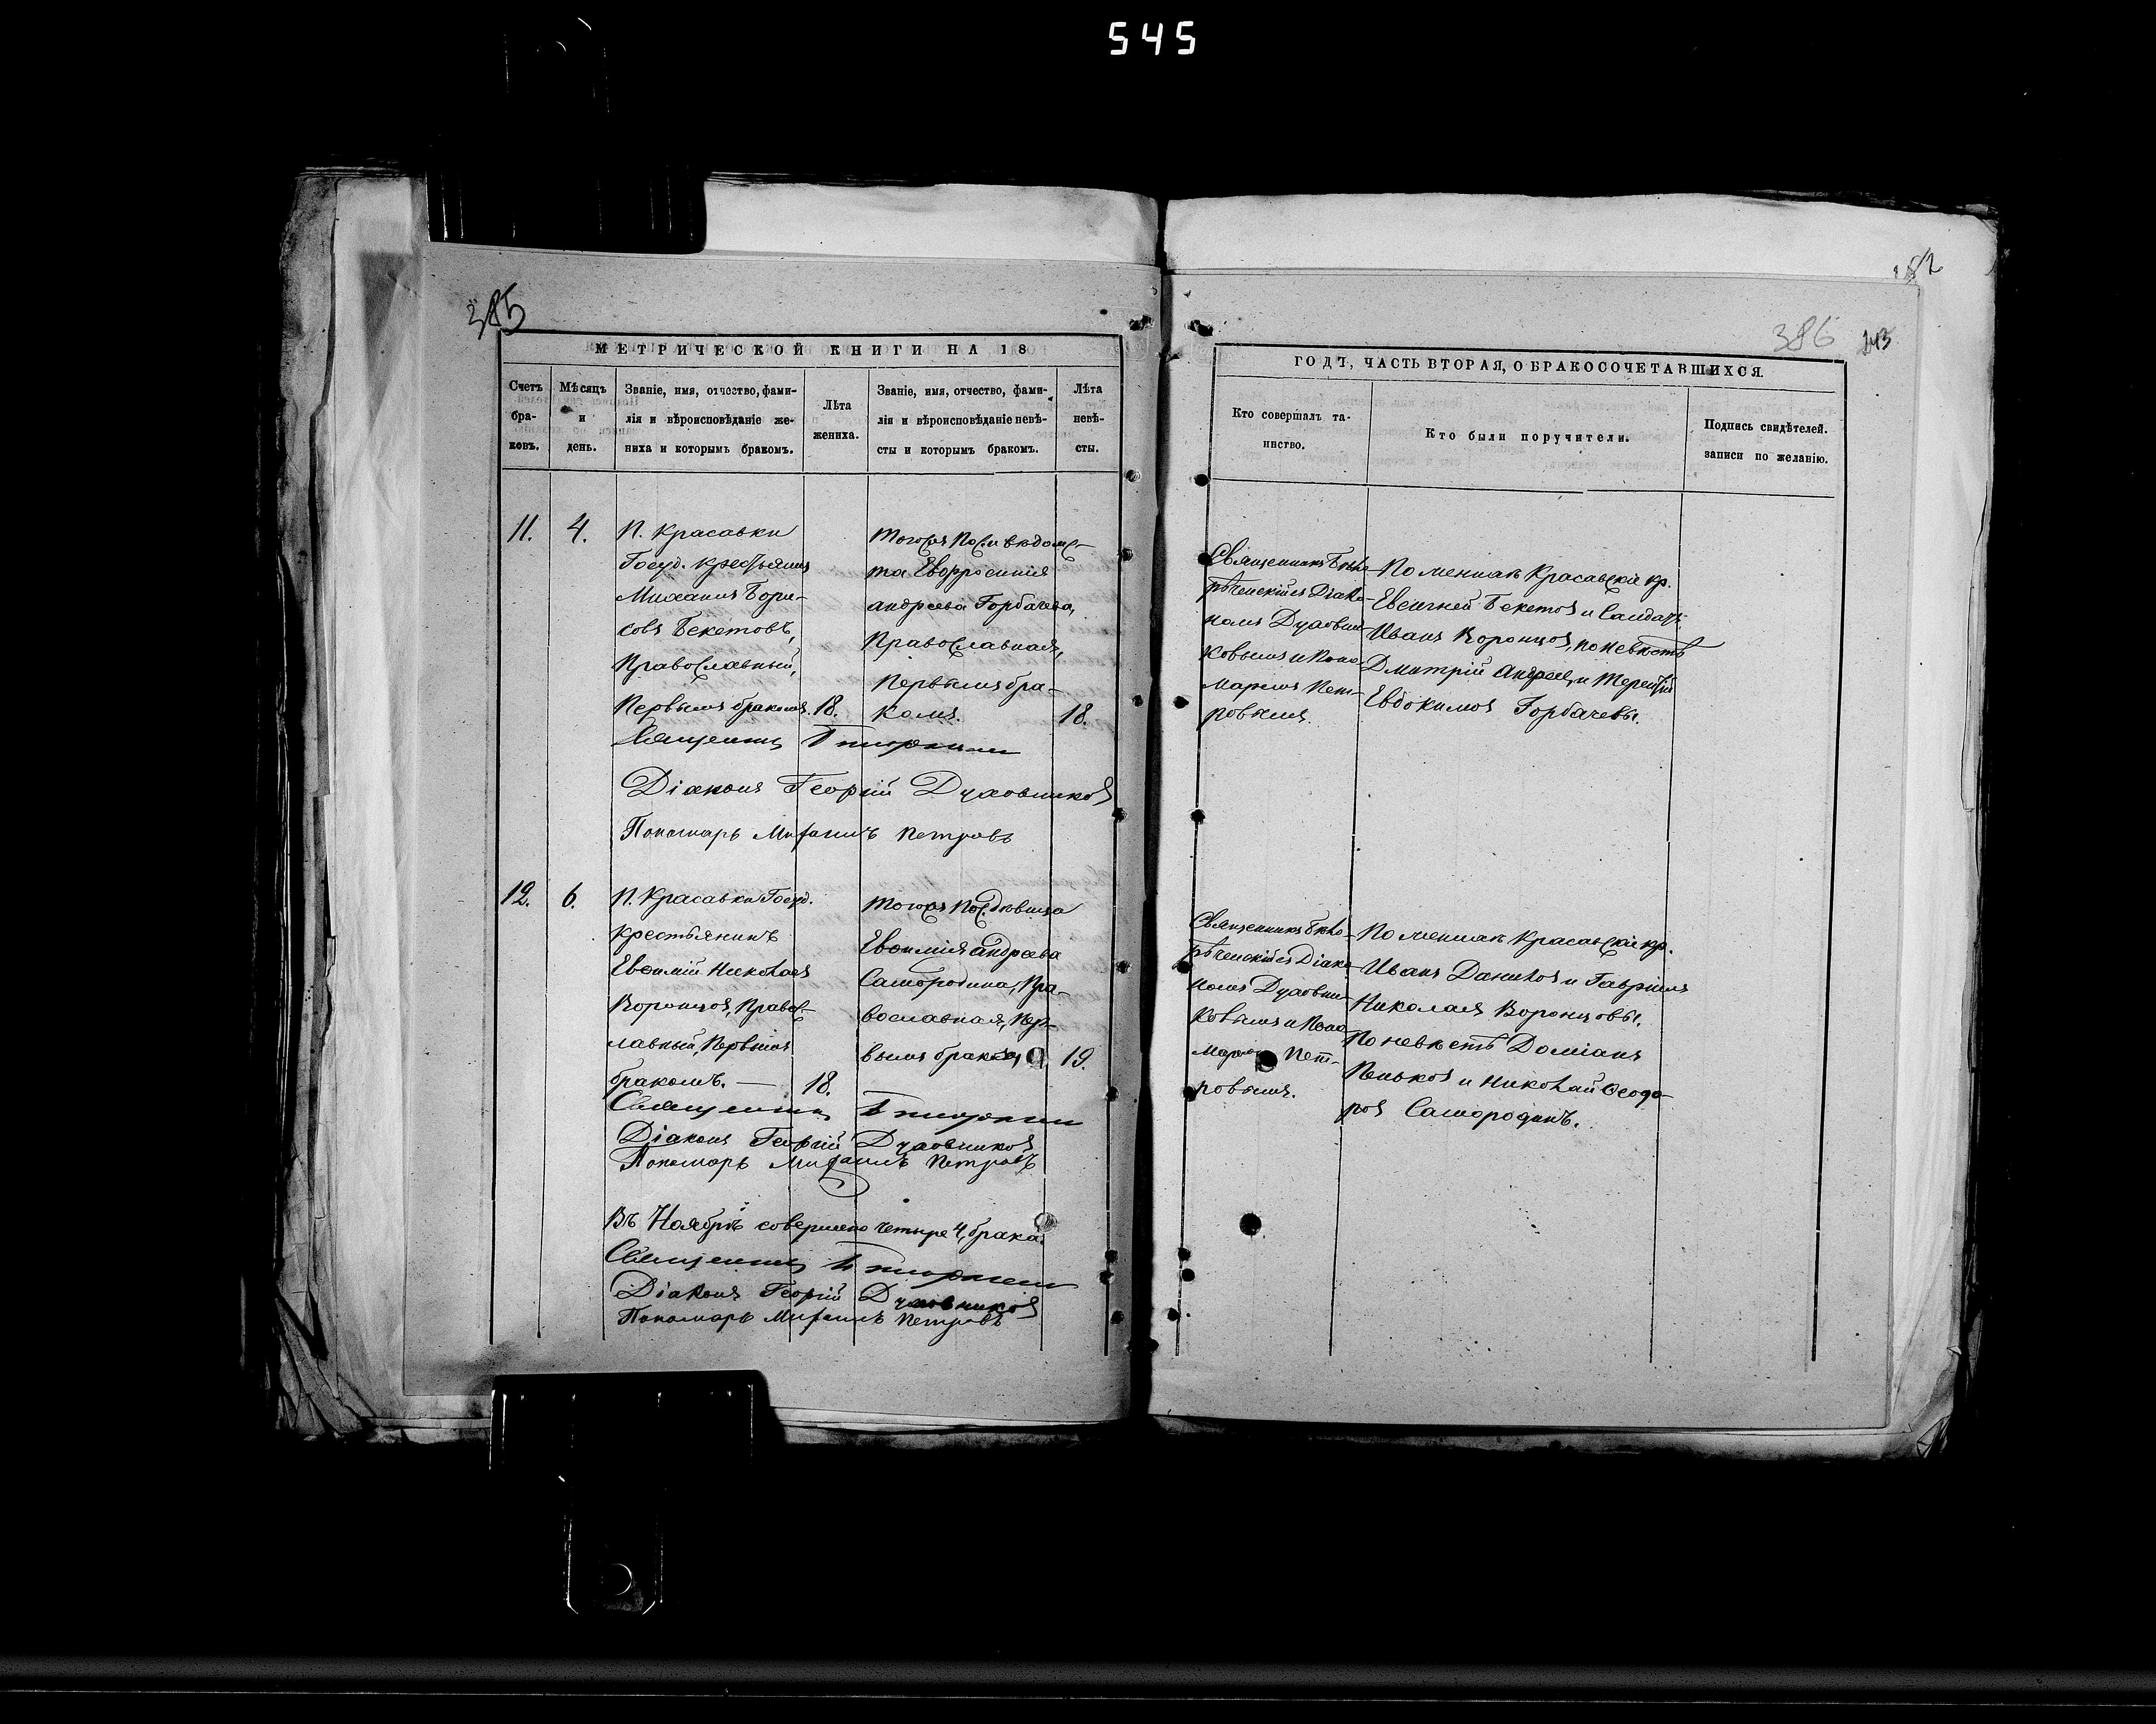 545
385
МЕТРИЧЕСКОЙ КНИГИ НА 18
Счетъ бра-ковъ.
Мѣсяцъ и день.
Званіе, имя, отчество, фами-
лія и вѣроисповѣданіе же-
ниха и которымъ бракомъ.
Лѣта жениха.
Званіе, имя, отчество, фами-
лія и вѣроисповѣданіе невѣ-
сты и которымъ бракомъ.
Лѣта невѣ-сты.
11.
4.
П. Красавки
Госуд. крестьянинъ
Михаилъ Бори-
совъ Бекетовъ,
Православный,
Первымъ бракомъ.
18.
того
та Евфросинія
Андреева Горбачева,
Православная,
Первымъ бра-
комъ.
18.
Священникъ
Діаконъ Георгій Духовниковъ
Пономарь Михаилъ Петровъ
12.
6.
П. Красавки Госуд.
крестьянинъ
Евѳимій Николаевъ
Воронцовъ, Правос-
лавный, Первымъ
бракомъ. —
18.
девица
Евѳимія Андреева
Самородина, Пра-
вославная, Пер-
вымъ бракомъ
19.
Священникъ
Діаконъ Георгій Духовниковъ
Пономарь Михаилъ Петровъ
Въ Ноябрѣ совершено четыре 4, брака.
Священникъ
Діаконъ Георгій Духовниковъ
Пономарь Михаилъ Петровъ
182
386
243
ГОДЪ, ЧАСТЬ ВТОРАЯ, О БРАКОСОЧЕТАВШИХСЯ.
Кто совершалъ та-
инство.
Кто были поручители.
Подпись свидѣтелей.
записи по желанію.
Священникъ Бѣло-
рѣченскій съ Діако-
номъ Духовни-
ковымъ и Поно-
маремъ Пет-
ровымъ.
По женихѣ Красавскіе кр.
Евгеній Бекетовъ и Салдатъ
Иванъ Воронцовъ, по невѣстѣ
Дмитрій Андреевъ и Терентій
Евдокимовъ Горбачевы.
Священникъ Бѣло-
рѣченскій съ Діако-
номъ Духовни-
ковымъ и Поно-
маремъ Пет-
ровымъ.
По женихѣ Красавскіе кр.
Иванъ Даниловъ и Гавріилъ
Николаевъ Воронцовы.
По невѣстѣ Доміанъ
Пеньковъ и Николай Ѳеодо-
ровъ Самородинъ.